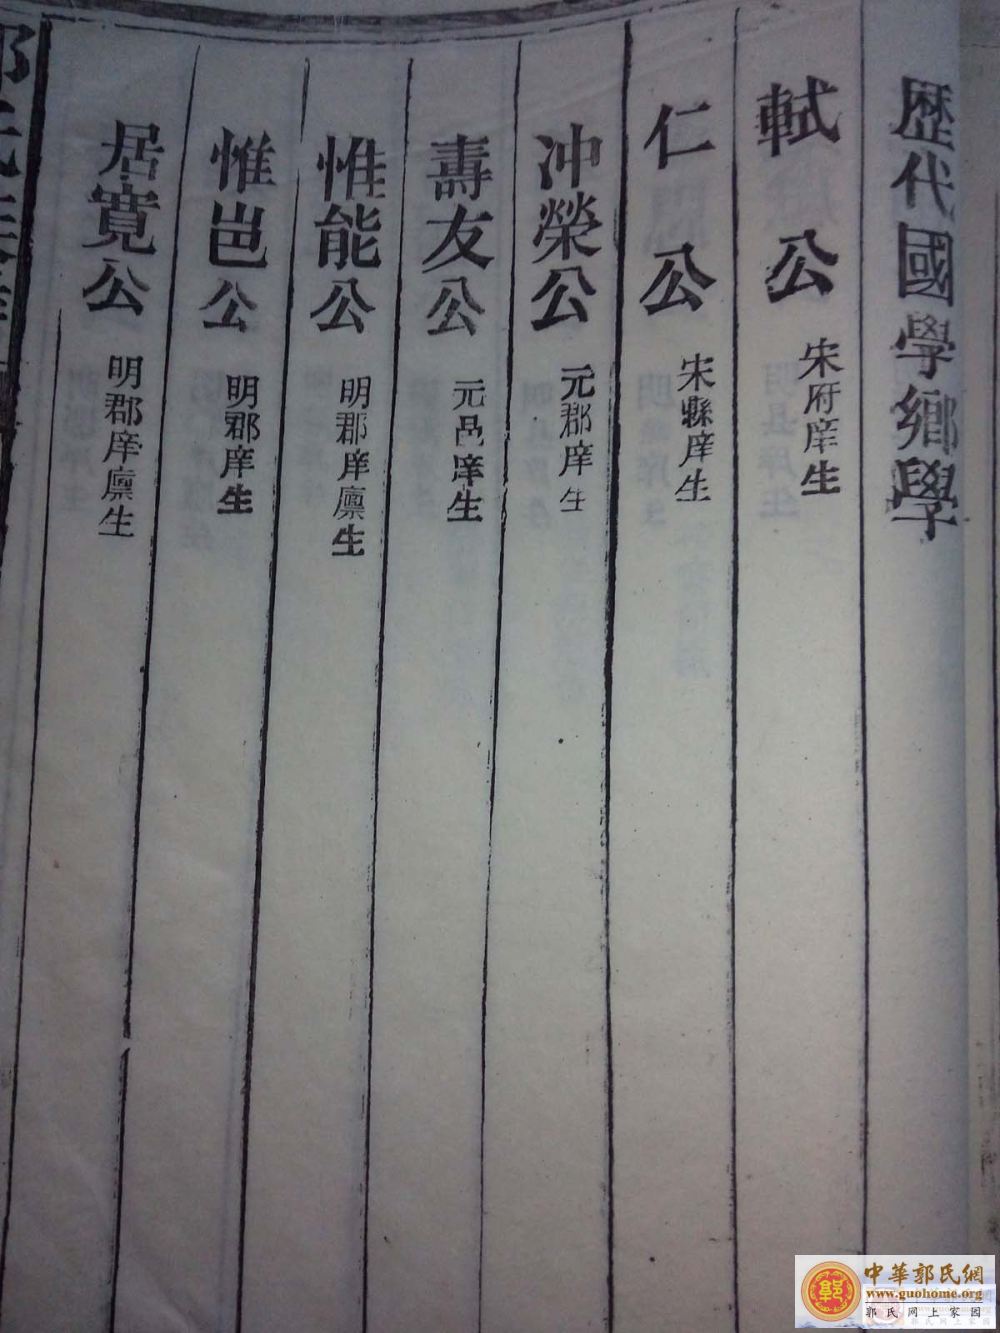 歷代國學鄉學
軾公 宋府庠生
仁公 宋縣庠生
冲榮公 元郡庠生
壽友公 元邑庠生
惟能公 明郡庠廩生
惟岜公 明郡庠生
居寬公 明郡庠廩生
中華郭氏網
www.guohome.org
郭氏网上家园